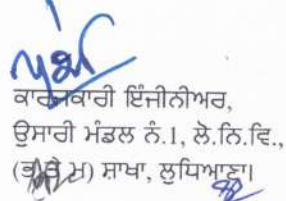 ਕਾਰਜਕਾਰੀ ਇੰਜੀਨੀਅਰ,
ਉਸਾਰੀ ਮੰਡਲ ਨੰ.1, ਲੋ.ਨਿ.ਵਿ.,
(ਭ ਤੇ ਮ) ਸ਼ਾਖਾ, ਲੁਧਿਆਣਾ।